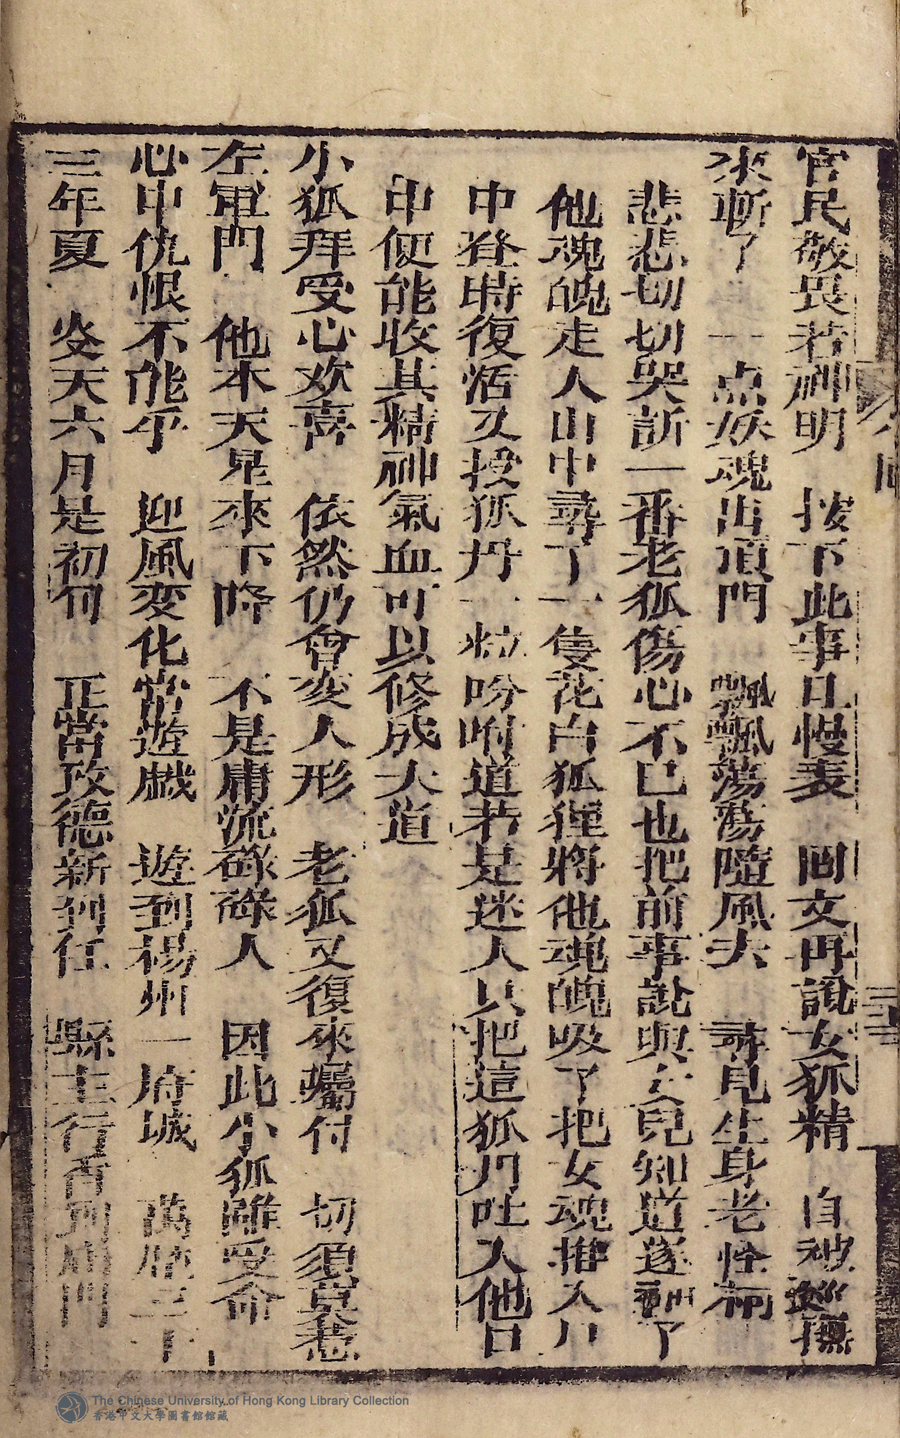 官民敬畏若神明　按下此事且慢表　回文再說女狐精　自被巡撫
來斬了　一点妖魂出頂門　飄飄蕩蕩隨風去　尋見生身老怪
悲悲切切哭訴一番老狐傷心不已也把前事說與女兒知道遂 了
他魂魄走入山中尋了一隻花白狐狸將他魂魄吸了把女魂推入
中登時復活又授狐丹一粒吩咐道若是迷人只把這狐丹吐入他口
中便能收其精神氣血可以修成大道
小狐拜受心欢喜　依然仍會变人形　老狐又復來囑付　切須莫惹
左軍門　他本天星來下降　不是庸流碌碌人　因此小狐雖受命
心中仇恨不能平　迎風变化常遊戲　遊到楊州一府城　萬曆三十
三年夏　炎天六月是初旬　正當攷德新到任　縣主行香到庙門
The Chinese University of Hong Kong Library Collection
香港中文大學圖書館館藏